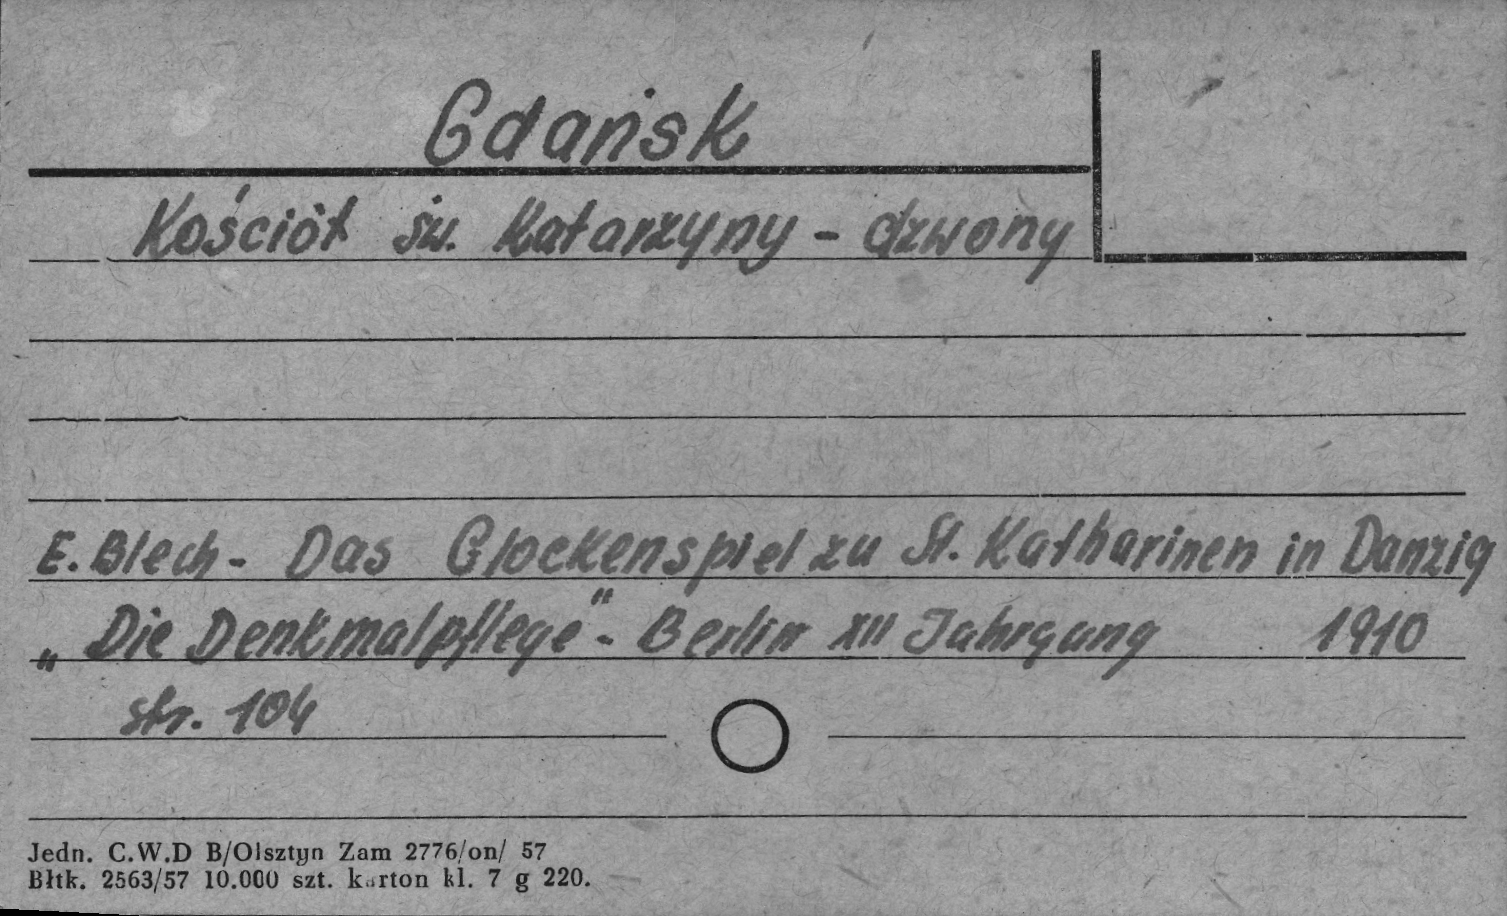 Gdańsk
Kościół św. Katarzyny - dzwony
E. Blech - Das Glockenspiel zu St. Katharinen in Danzig
„Die Denkmalpflege" - Berlin XII Jahrgang 1910
str. 104
Jedn. C.W.D B/Olsztyn Zam 2776/on/ 57
Błtk. 2563/57 10.000 szt. karton kl. 7 g 220.